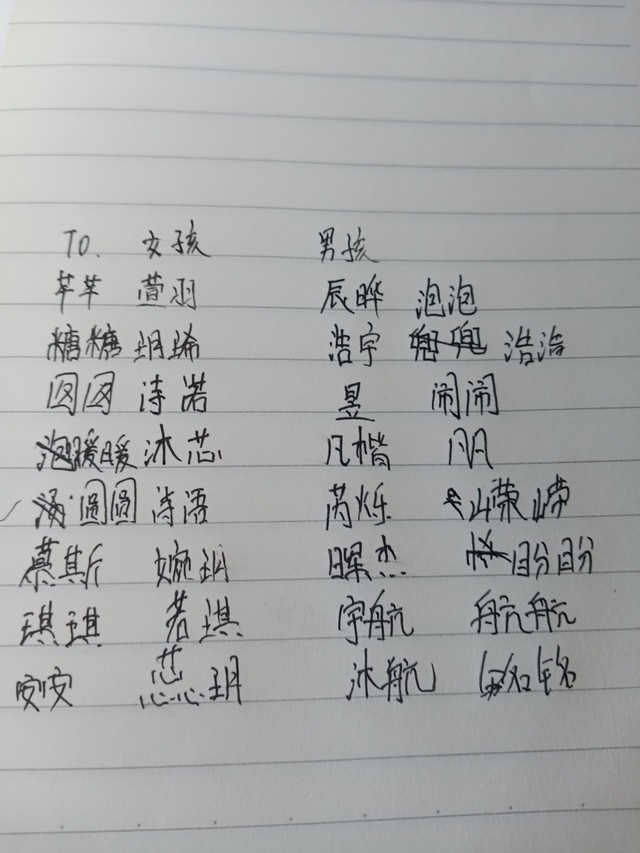 To. 女孩 男孩
芊芊 萱羽 辰晔 泡泡
糖糖 玥琋 浩宇 浩浩
囡囡 诗若 昱 闹闹
暖暖 沐芯 凡楷 凡凡
圆圆 诗语 芮烁 嵘嵘
慕斯 婉玥 杰 盼盼
琪琪 若琪 宇航 航航
安安 芯玥 沐航 铭铭